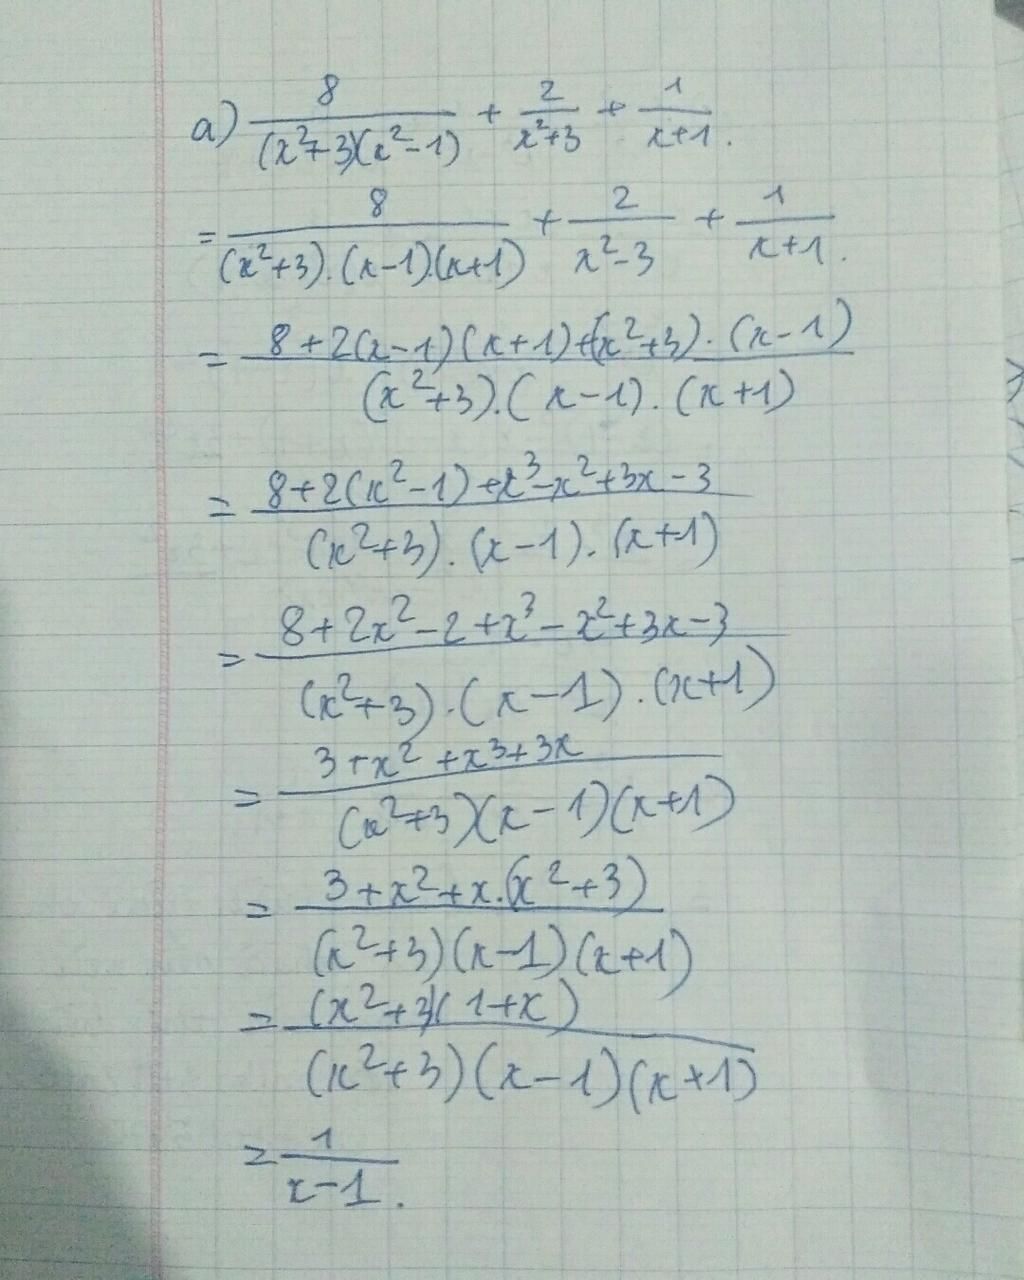 a) 8/((x²+3)(x²-1)) + 2/(x²+3) + 1/(x+1).
= 8/((x²+3).(x-1).(x+1)) + 2/(x²-3) + 1/(x+1).
= (8+2(x-1)(x+1)+(x²+3).(x-1))/((x²+3).(x-1).(x+1))
= (8+2(x²-1)+x³-x²+3x-3)/((x²+3).(x-1).(x+1))
= (8+2x²-2+x³-x²+3x-3)/((x²+3).(x-1).(x+1))
= (3+x²+x³+3x)/((x²+3)(x-1)(x+1))
= (3+x²+x.(x²+3))/((x²+3)(x-1)(x+1))
= ((x²+3)(1+x))/((x²+3)(x-1)(x+1))
= 1/(x-1).